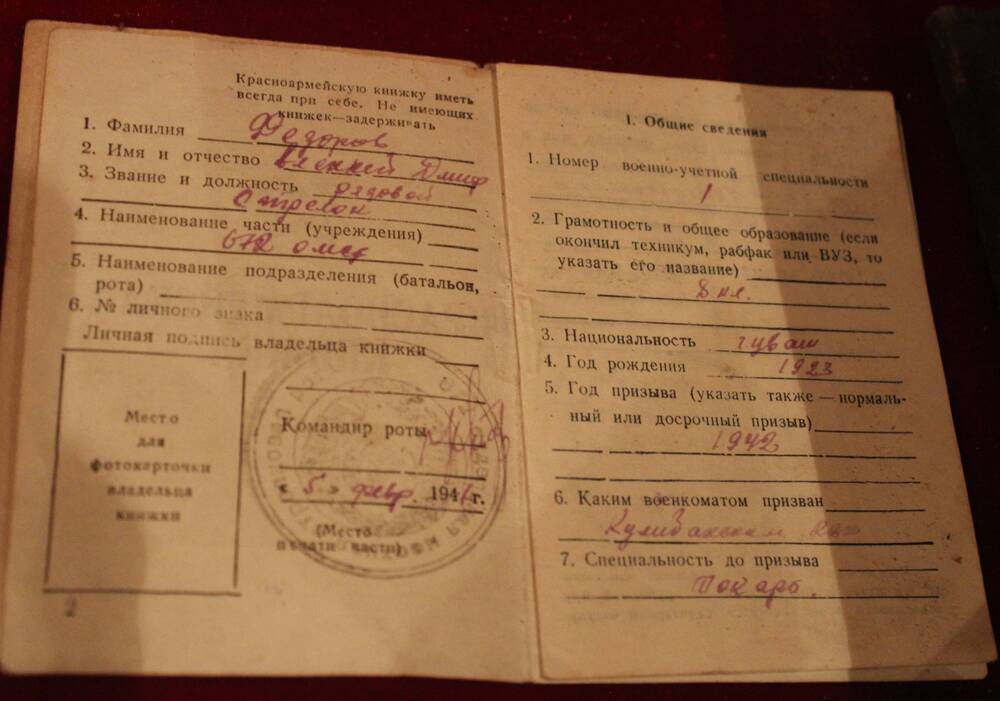 Красноармейскую книжку иметь
всегда при себе. Не имеющих
книжек—задерживать
1. Фамилия Федоров
2. Имя и отчество
3. Звание и должность рядовой
стрелок
4. Наименование части (учреждения)
672
5. Наименование подразделения (батальон,
рота)
6. № личного знака
Личная подпись владельца книжки
Место
для
фотокарточки
владельца
книжки
Командир роты
« 5 » февр. 194 г.
(Место
печати части)
2
I. Общие сведения
1. Номер военно-учетной специальности
1
2. Грамотность и общее образование (если
окончил техникум, рабфак или ВУЗ, то
указать его название)
8 кл.
3. Национальность чуваш
4. Год рождения 1923
5. Год призыва (указать также — нормаль-
ный или досрочный призыв)
1942
6. Каким военкоматом призван
7. Специальность до призыва
Токарь.